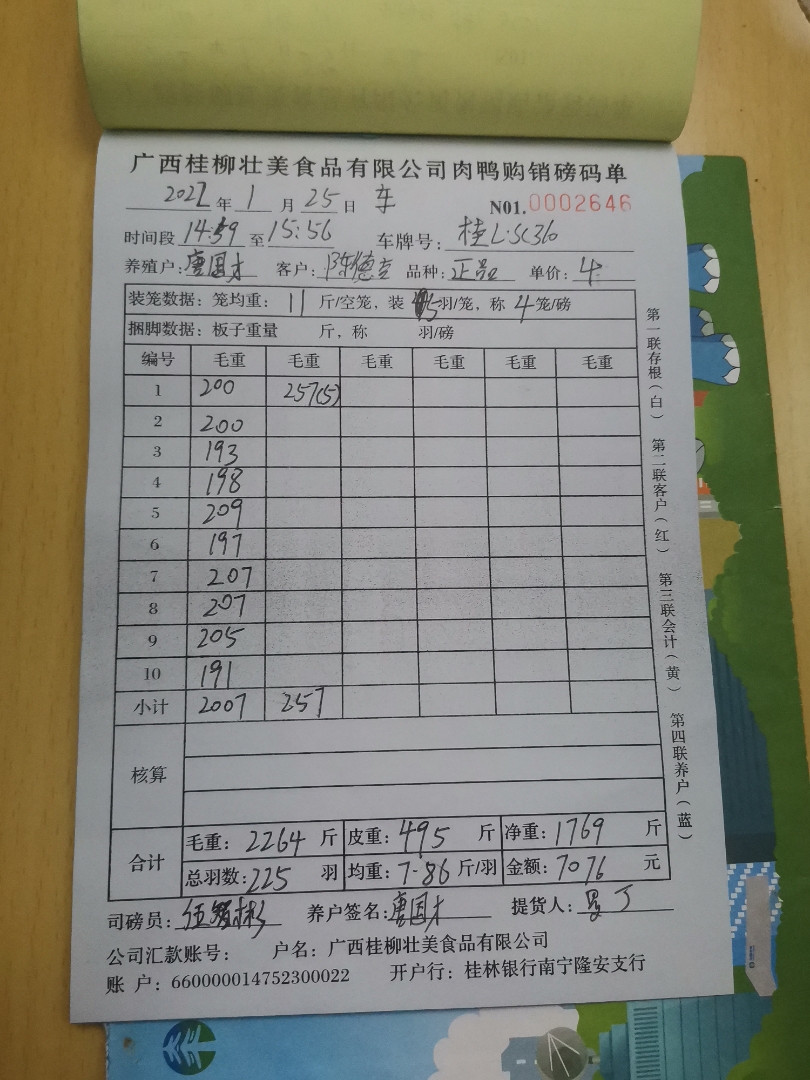 广西桂柳壮美食品有限公司肉鸭购销磅码单
2022年1月25日 车 N01.0002646
时间段14:39至15:56 车牌号:桂L·SC360
养殖户:唐国才 客户:陈德 品种:正品 单价:4
装笼数据:笼均重:11斤/空笼,装5羽/笼,称4笼/磅
捆脚数据:板子重量 斤,称 羽/磅
编号 毛重 毛重 毛重 毛重 毛重 毛重
1 200 257(5)
2 200
3 193
4 198
5 209
6 197
7 207
8 207
9 205
10 191
小计 2007 257
核算
合计 毛重:2264斤 皮重:495斤 净重:1769斤
总羽数:225羽 均重:7.86斤/羽 金额:7076元
司磅员: 养户签名:唐国才 提货人:
公司汇款账号: 户名:广西桂柳壮美食品有限公司
账 户:660000014752300022 开户行:桂林银行南宁隆安支行
第一联存根(白) 第二联客户(红) 第三联会计(黄) 第四联养户(蓝)